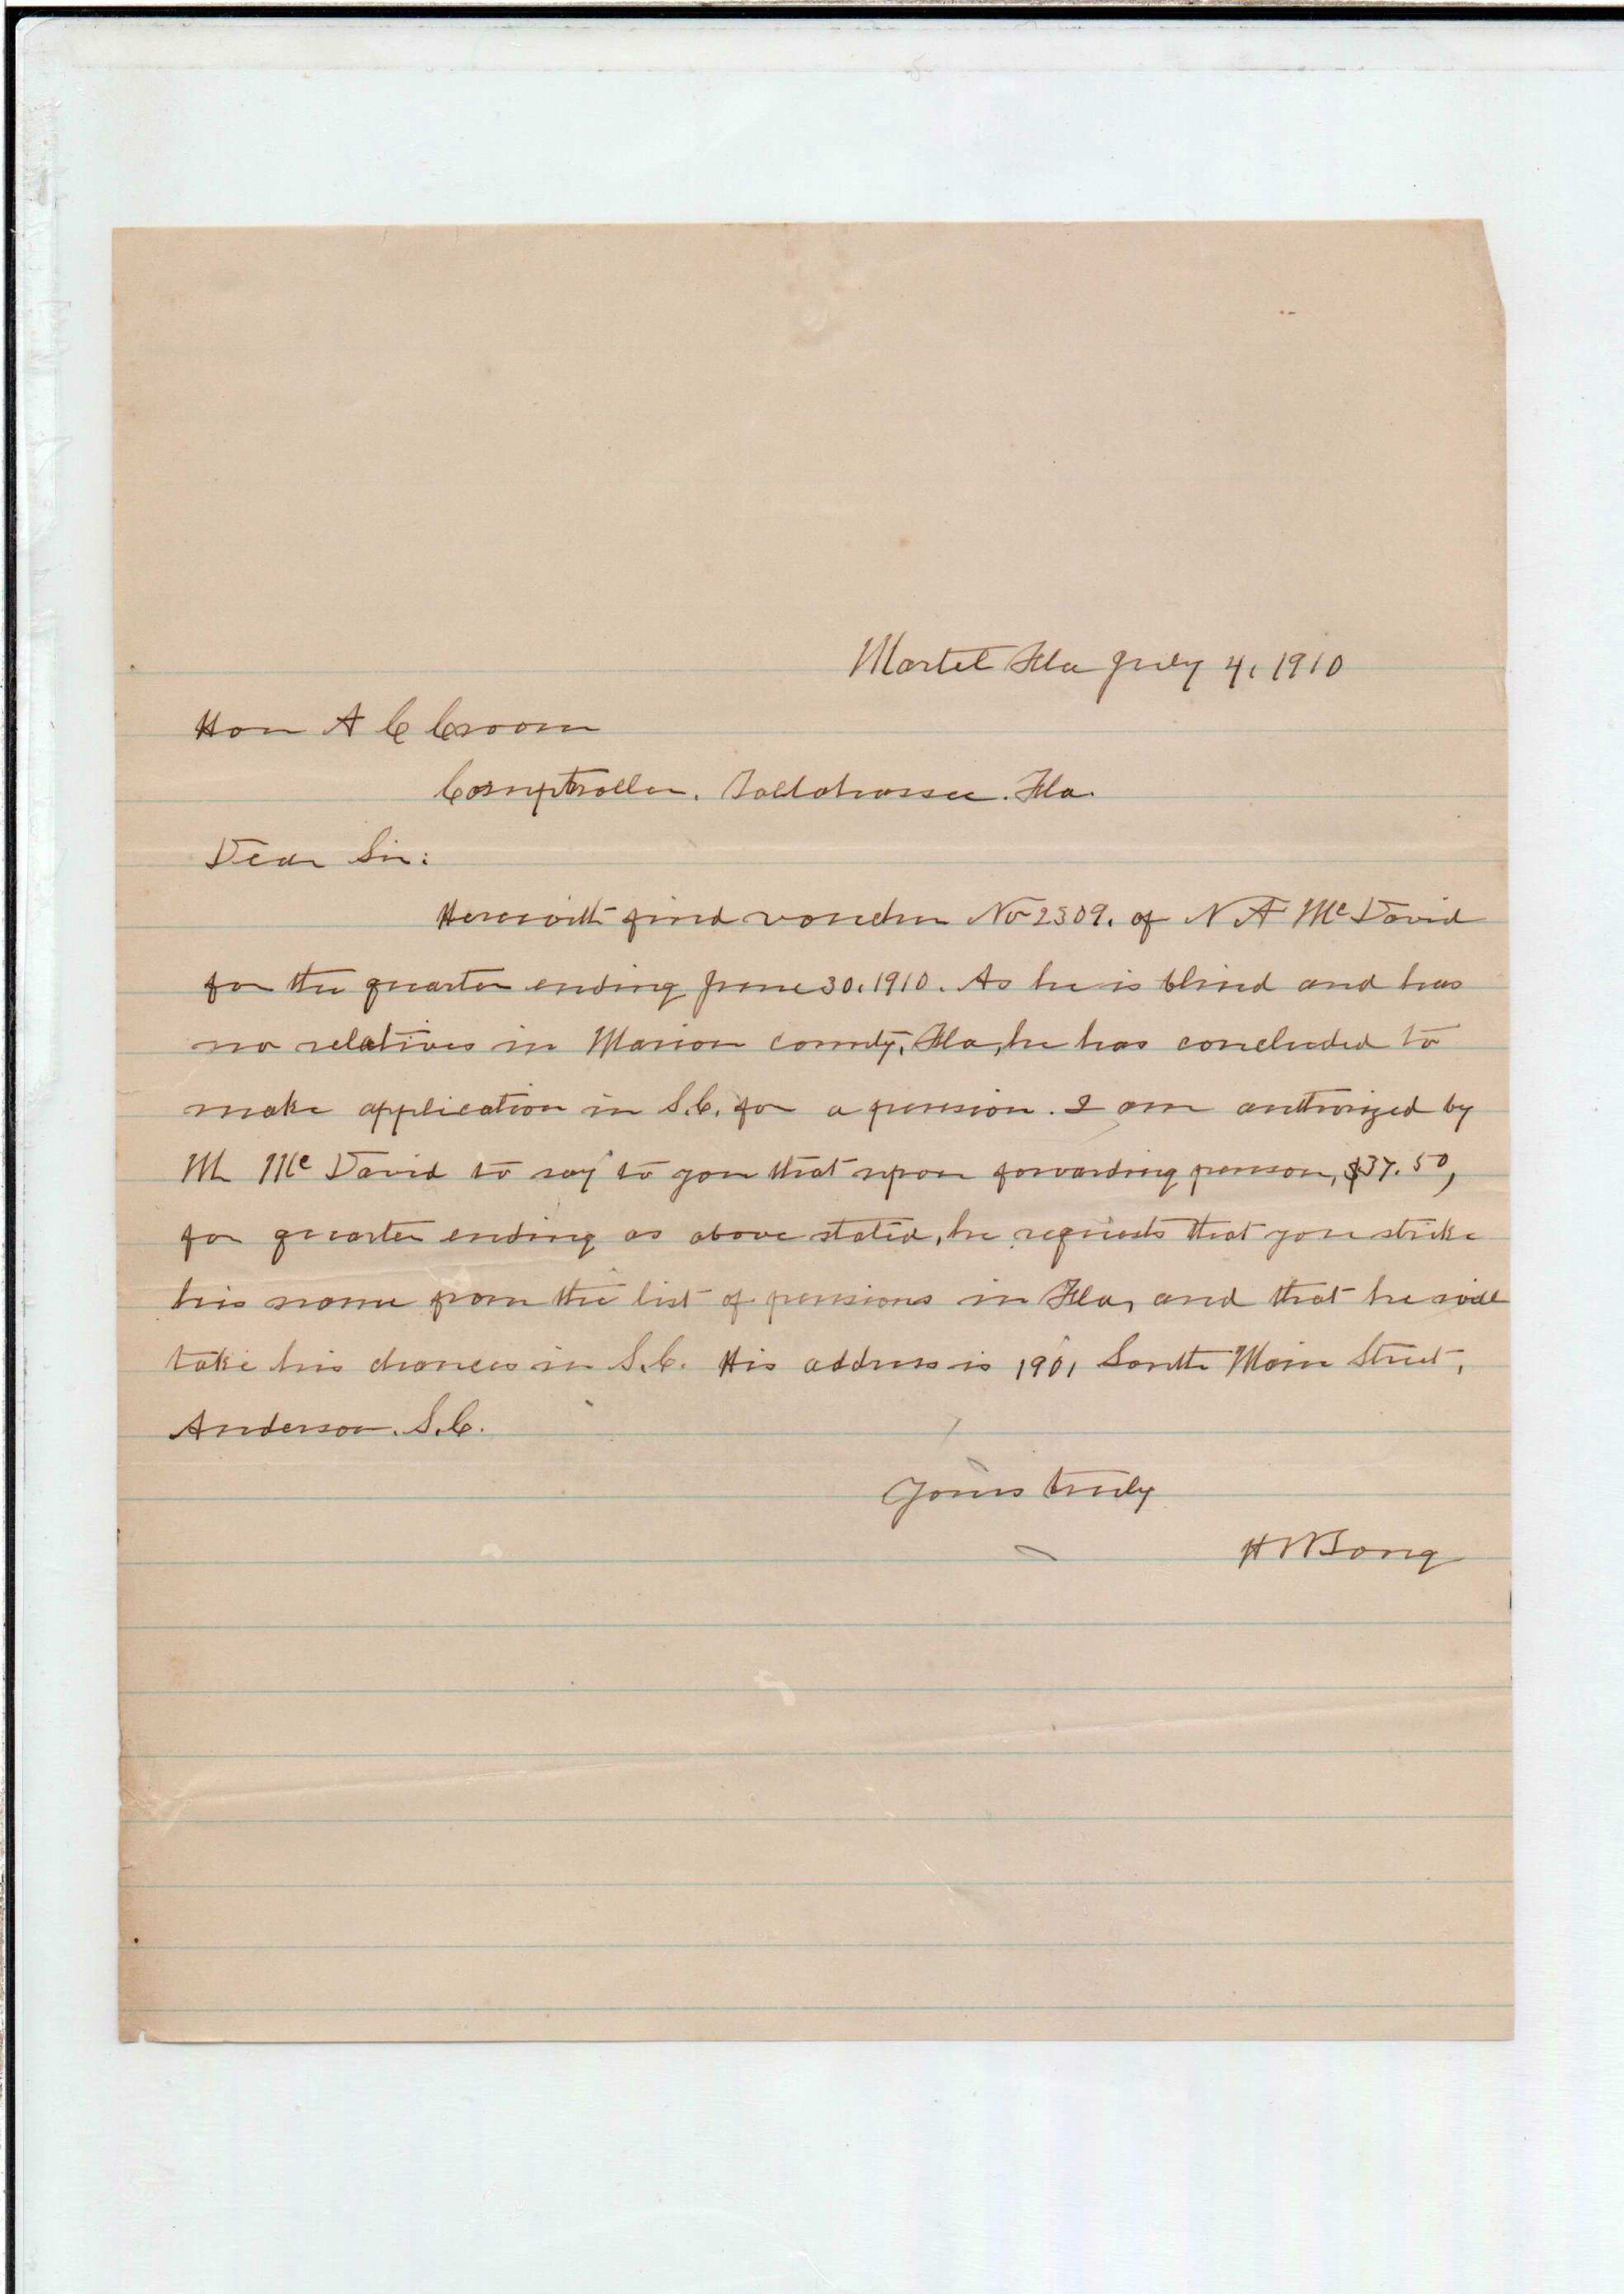 Martel Fla July 4, 1910
Hon A C Croom
Comptroller. Tallahassee. Fla.
Dear Sir:
Herewith find voucher No 2309. of N A McDavid
for the quarter ending June 30, 1910. As he is blind and has
no relatives in Marion county, Fla, he has concluded to
make application in S.C. for a pension. I am authorized by
Mr McDavid to say to you that upon forwarding pension, $37.50,
for quarter ending as above stated, he requests that you strike
his name from the list of pensions in Fla, and that he will
take his chances in S.C. His address is 1901 South Main Street,
Anderson. S.C.
Yours truly
H W Long